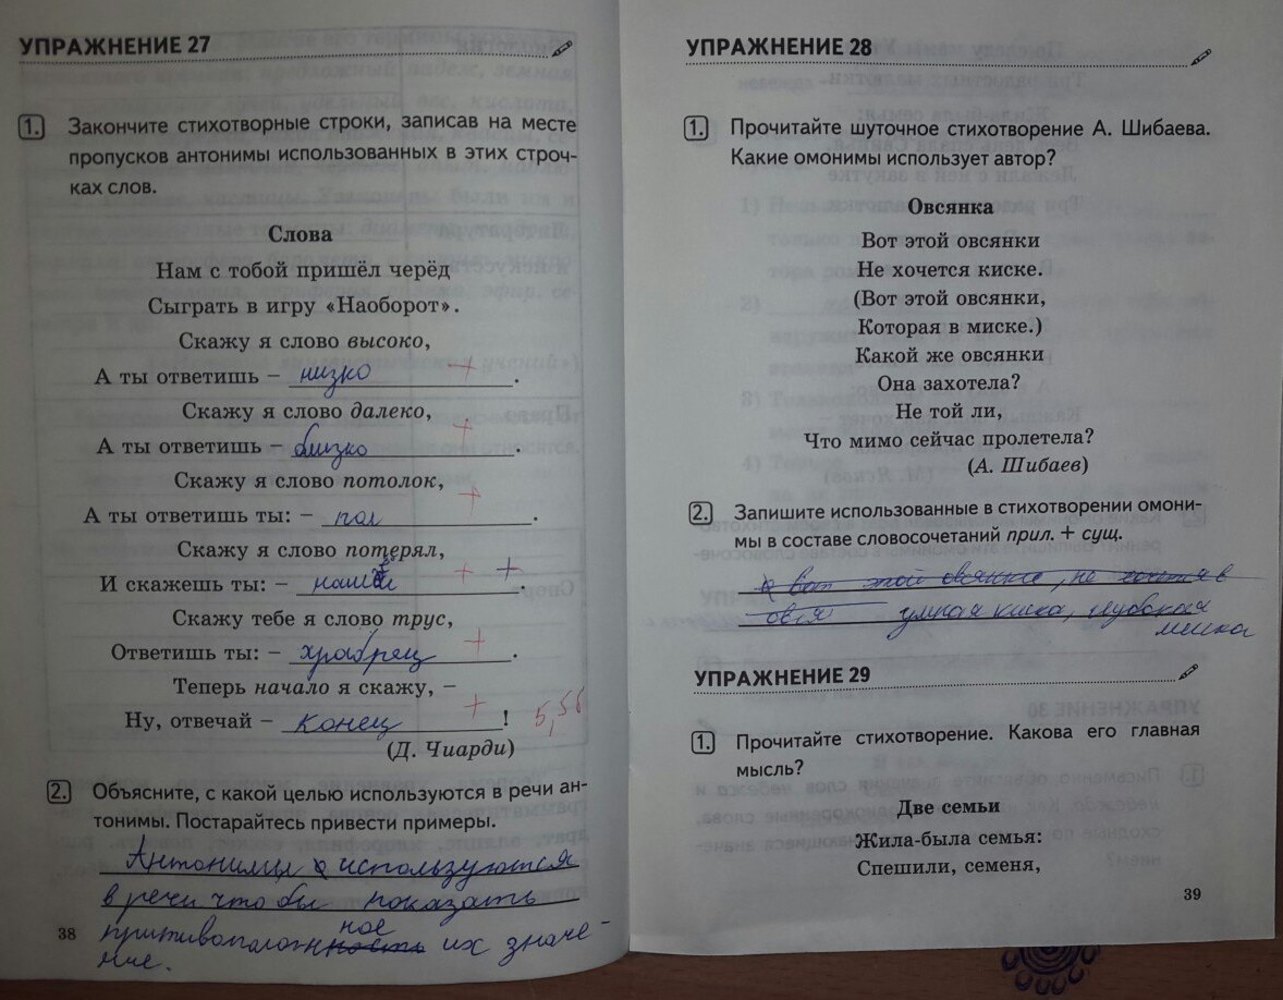 УПРАЖНЕНИЕ 27
1. Закончите стихотворные строки, записав на месте
пропусков антонимы использованных в этих строч-
ках слов.
Слова
Нам с тобой пришёл черёд
Сыграть в игру «Наоборот».
Скажу я слово высоко,
А ты ответишь – низко + .
Скажу я слово далеко,
А ты ответишь – близко + .
Скажу я слово потолок,
А ты ответишь ты: – пол + .
Скажу я слово потерял,
И скажешь ты: – нашёл + + .
Скажу тебе я слово трус,
Ответишь ты: – храбрец + .
Теперь начало я скажу, –
Ну, отвечай – конец + !
(Д. Чиарди)
2. Объясните, с какой целью используются в речи ан-
тонимы. Постарайтесь привести примеры.
Антонимы используются
в речи что бы показать
притивоположное их значе-
ние.
38
УПРАЖНЕНИЕ 28
1. Прочитайте шуточное стихотворение А. Шибаева.
Какие омонимы использует автор?
Овсянка
Вот этой овсянки
Не хочется киске.
(Вот этой овсянки,
Которая в миске.)
Какой же овсянки
Она захотела?
Не той ли,
Что мимо сейчас пролетела?
(А. Шибаев)
2. Запишите использованные в стихотворении омони-
мы в составе словосочетаний прил. + сущ.
вот этой овсянке, не
овся умная киска, глубокая
миска
УПРАЖНЕНИЕ 29
1. Прочитайте стихотворение. Какова его главная
мысль?
Две семьи
Жила-была семья:
Спешили, семеня,
39